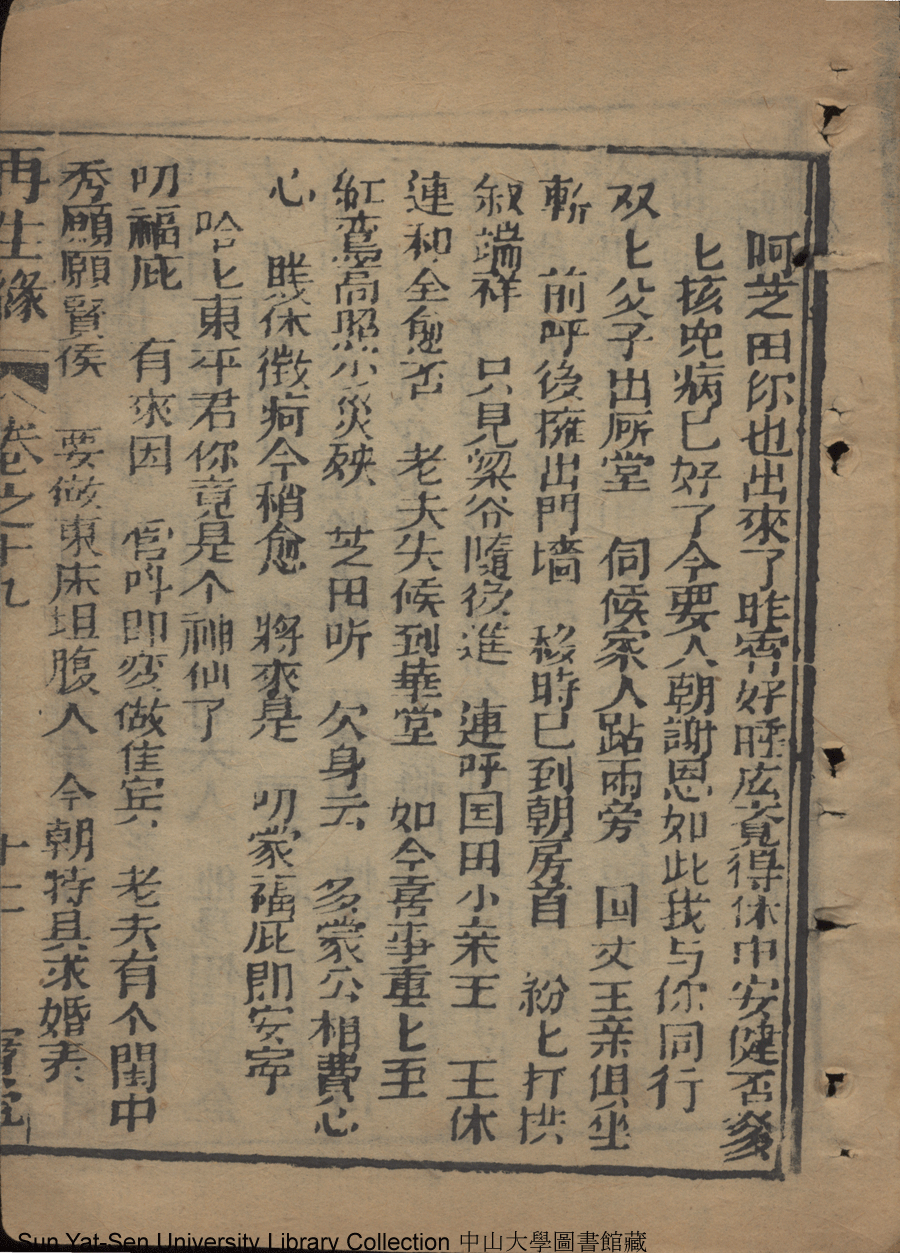 呵芝田你也出來了昨宵好睡広竟得休中安健否爹
匕孩兒病已好了今要入朝謝恩如此我与你同行
双匕父子出厛堂　伺候家人跕兩旁　回丈王亲俱坐
轎　前呼後擁出門墻　移時已到朝房首　紛匕打拱
叙端祥　只見梁谷隨後進　連呼国田小亲王　王休
連和全愈否　老夫失候到華堂　如今喜事重匕至
紅鸞高照小災殃　芝田听　欠身云　多蒙公相費心
心　賎休微痾今稍愈　將來是　叨蒙福庇即安寧
哈匕東平君你竟是个神仙了
叨福庇　有來因　官呌即変做佳賓　老夫有个閨中
秀願願賢侯　要做東床坦腹人　今朝特具求婚表
再生緣　卷之十九　十二
Sun Yat-Sen University Library Collection 中山大學圖書館藏